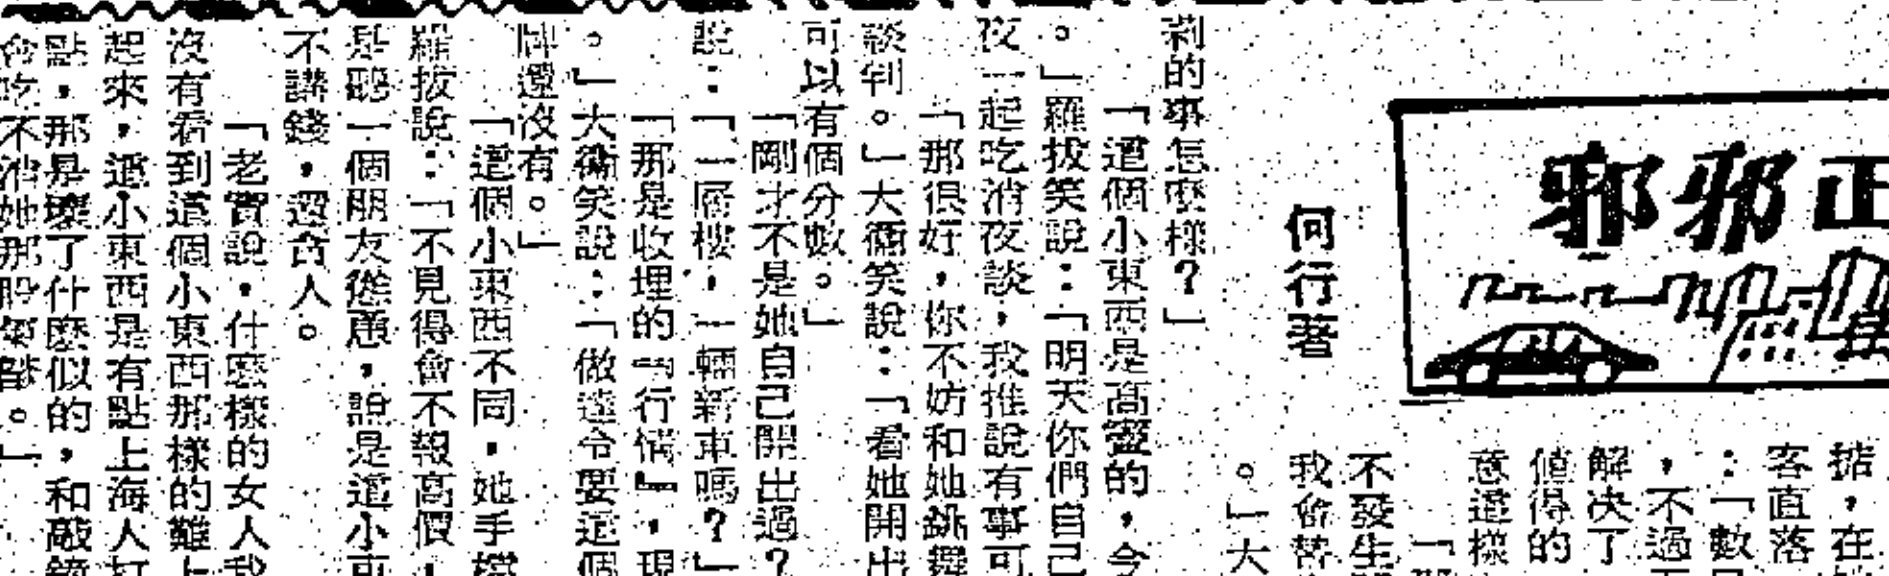 正邪邪
何行著
掂，在
客直落
：「數
，不過
解决了
值得的
意這樣
「
不發生
我會替
。」大
剎的事怎麼樣？」
「這個小東西是高竇的，今
。」羅拔笑說：「明天你們自己
夜一起吃消夜談，我推說有事可
「那很好，你不妨和她跳舞
談判。」大衞笑說：「看她開出
可以有個分數。」
「剛才不是她自己開出過？
說：「一層樓，一輛新車嗎？」
「那是收埋的『行情』，現
。」大衞笑說：「做達令要這個
牌還沒有。」
「這個小東西不同，她手
羅拔說：「不見得會不報高價，
是聽一個朋友慫恿，說是這小東
不講錢，還貪人。
「老實說，什麼樣的女人我
沒有看到這個小東西那樣的難上
起來，這小東西是有點上海人打
點，那是壞了什麼似的，和敲
會吃不消她那股氣燄。」